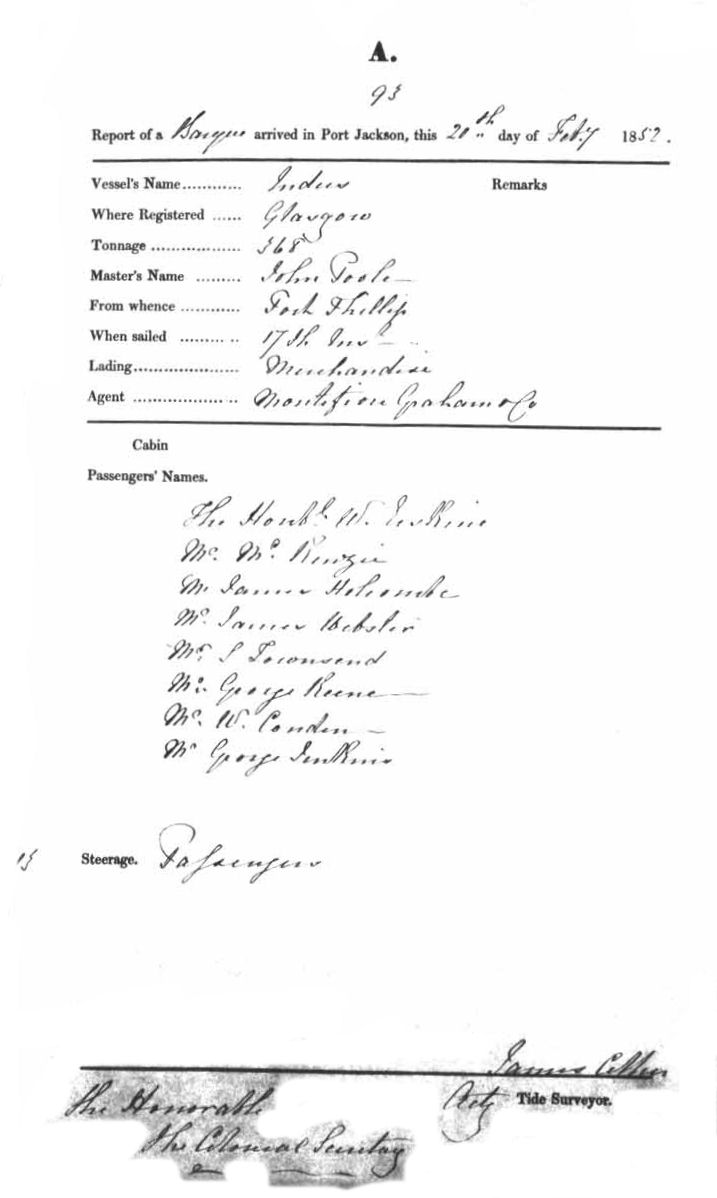 A.
93
Report of a Barque arrived in Port Jackson, this 20th day of Feby 1852.
Vessel's Name............ Indus Remarks
Where Registered ...... Glasgow
Tonnage .................. 368
Master's Name ......... John Poole
From whence ............ Port Phillip
When sailed ......... .. 17th Inst
Lading..................... Merchandise
Agent .................. .. Montefiore Graham & Co
Cabin
Passengers' Names.
The Honble W. Erskine
Mr. Mc Kenzie
Mr James Holcombe
Mr. James Webster
Mr. S Townsend
Mr. George Keene
Mr. W. Conden
Mr George Jenkins
13 Steerage. Passengers
James
Actg Tide Surveyor.
The Honorable
The Colonial Secretary